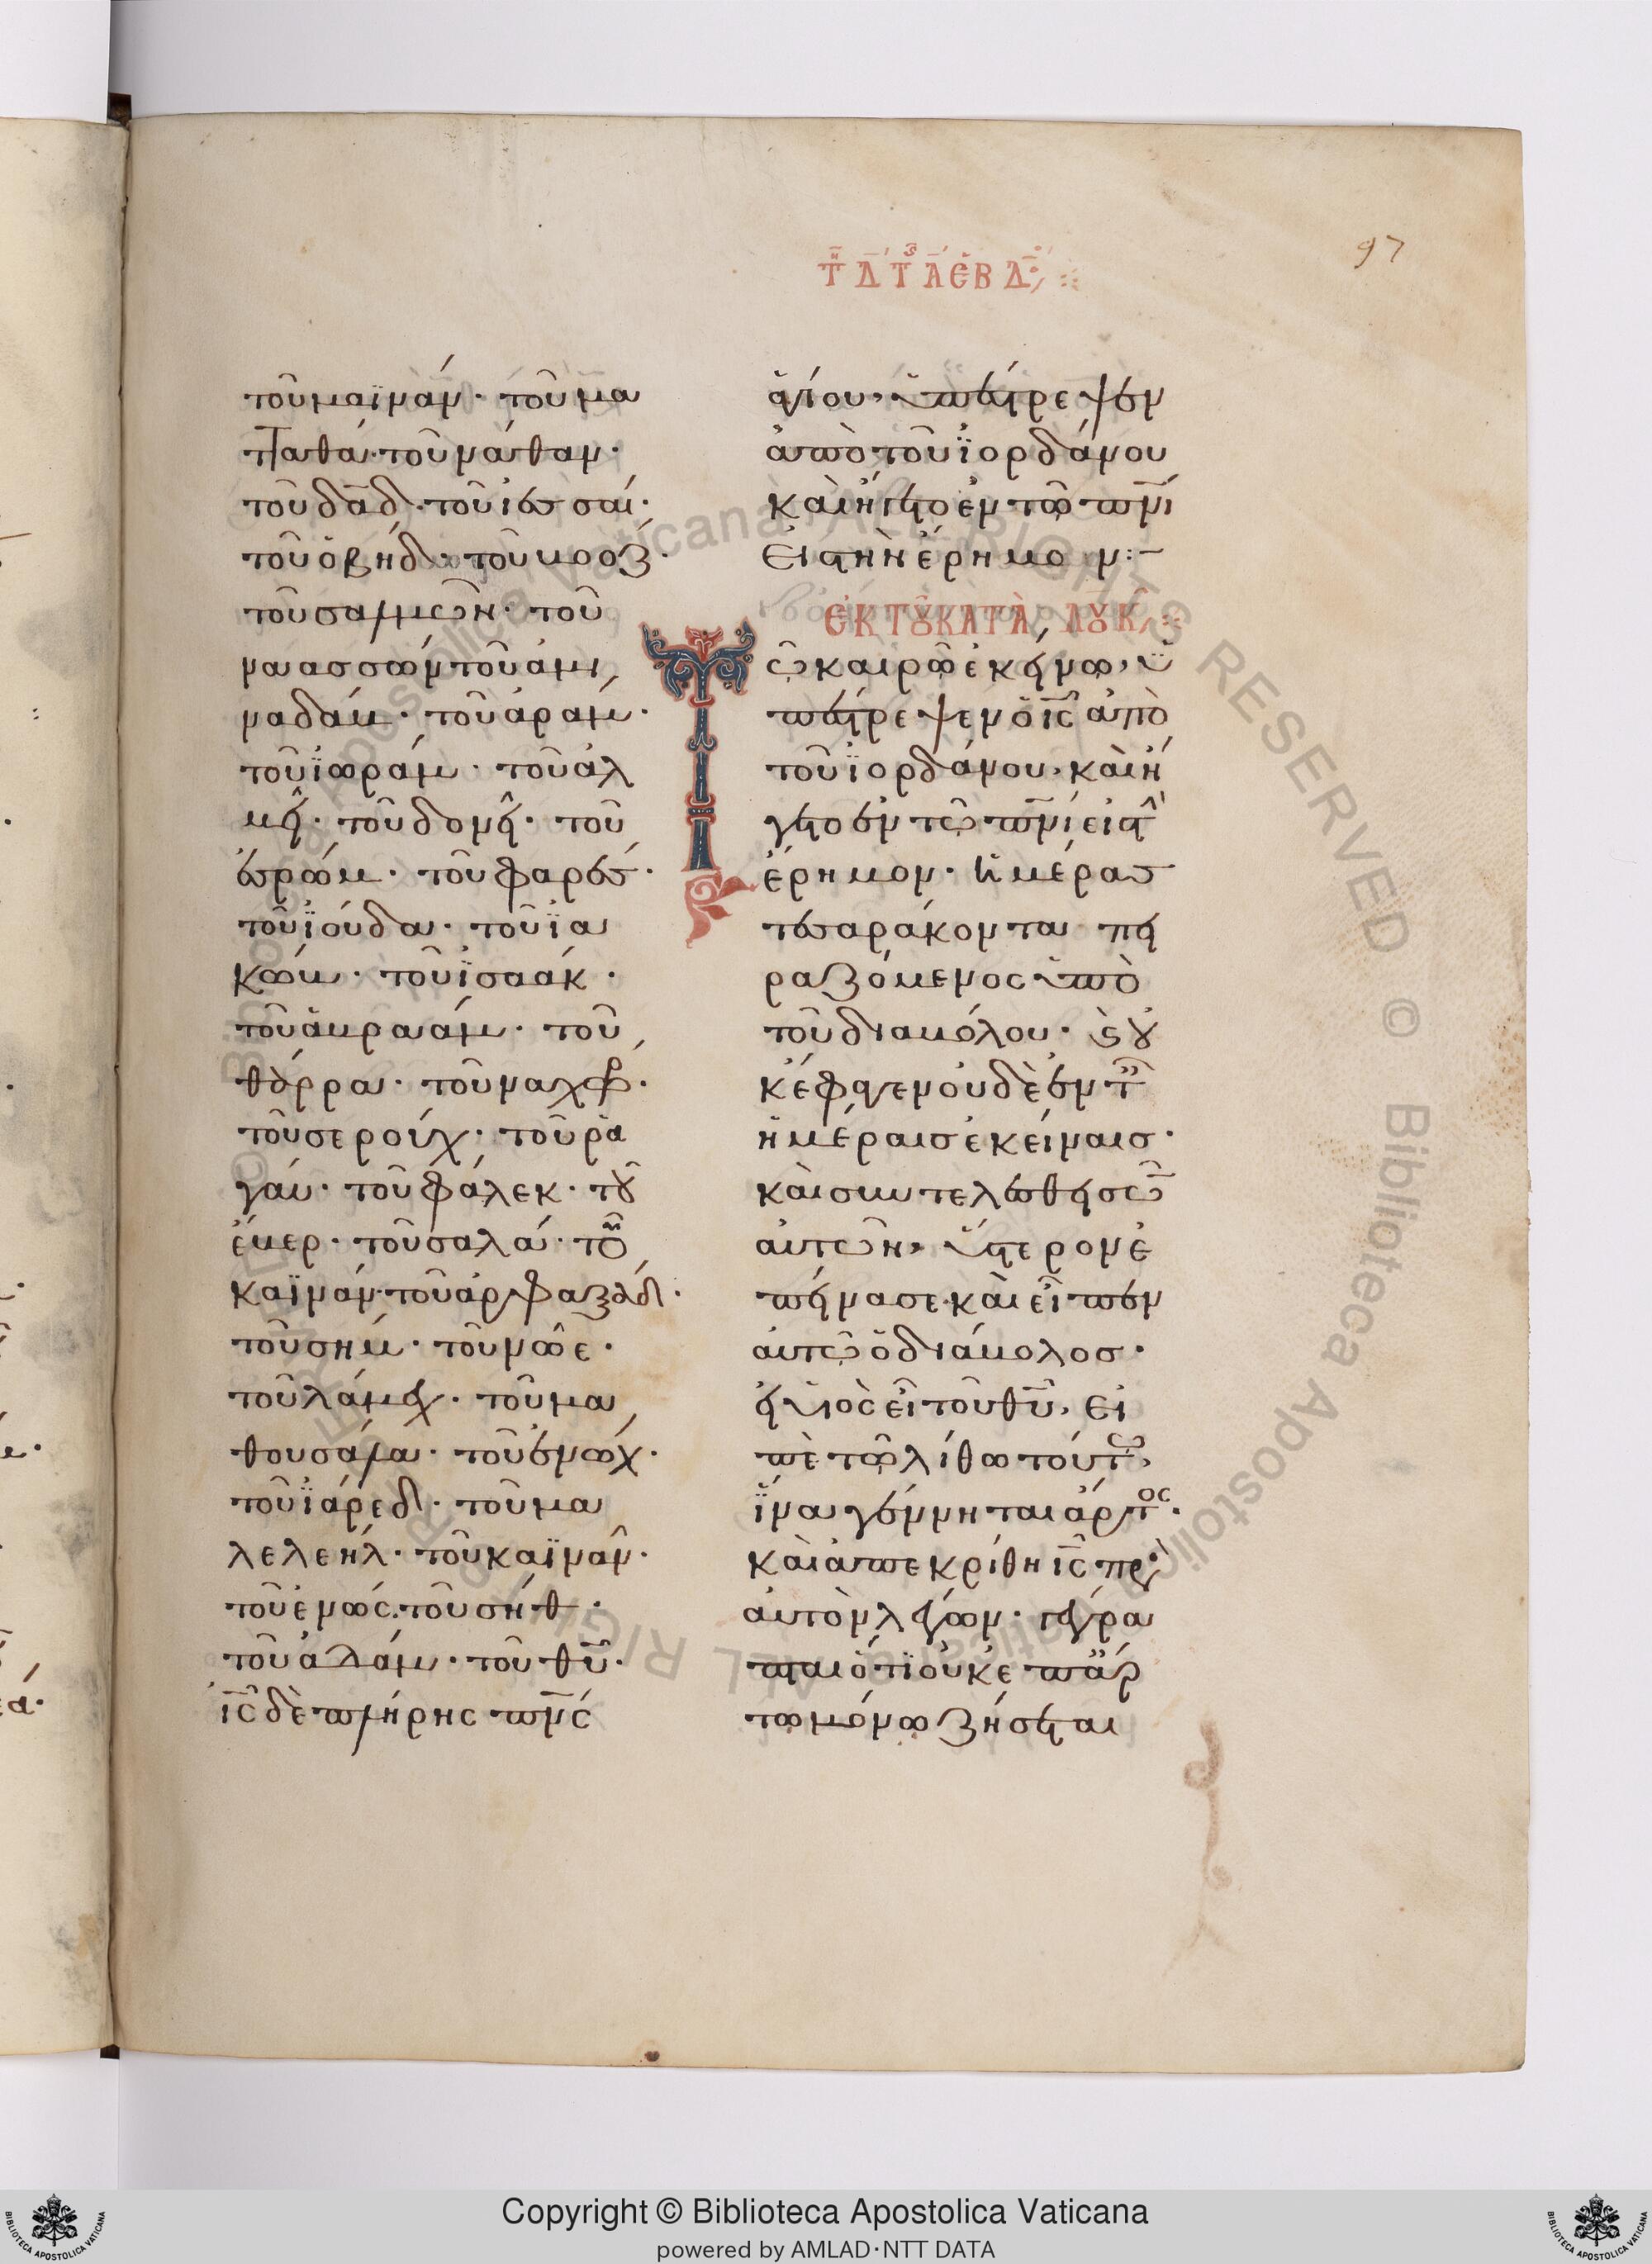 97
τῇ δ τῆς α ἑβδ
τοῦ μαϊνάν· τοῦ μα
τταθά· τοῦ νάθαν·
τοῦ δαδ· τοῦ ἰεσσαί·
τοῦ ὀβήδ· τοῦ βοόζ·
τοῦ σαλμὼν· τοῦ
ναασσών τοῦ ἀμι
ναδάβ· τοῦ ἀράμ·
τοῦ ἰωράμ· τοῦ ἀλ
μεί· τοῦ δονεί· τοῦ
ἐσρώμ· τοῦ φαρές·
τοῦ ἰούδα· τοῦ ἰα
κώβ· τοῦ ἰσαάκ·
τοῦ ἀβραάμ· τοῦ
θάρρα· τοῦ ναχώρ·
τοῦ σερούχ· τοῦ ῥα
γάυ· τοῦ φάλεκ· τοῦ
ἔβερ· τοῦ σαλά· τοῦ
καϊνάν· τοῦ ἀρφαξάδ·
τοῦ σήμ· τοῦ νῶε·
τοῦ λάμεχ· τοῦ μα
θουσάλα· τοῦ ἐνώχ·
τοῦ ἰάρεδ· τοῦ μα
λελεήλ· τοῦ καϊνάν·
τοῦ ἐνώς· τοῦ σήθ·
τοῦ ἀδάμ· τοῦ θυ·
ις δὲ πλήρης πνς
ἁγίου, ὑπέστρεψεν
ἀπὸ τοῦ ἰορδάνου
καὶ ἤγετο ἐν τῶ πνι
εἰς τὴν ἔρημον:-
ἐκ τοῦ κατὰ λουκ
Τῶ καιρῶ ἐκείνω, ὑ
πέστρεψεν ὁ ις ἀπὸ
τοῦ ἰορδάνου, καὶ ἤ
γετο ἐν τῶ πνι εἰς τὴν
ἔρημον· ἡμέρας
τεσσαράκοντα πει
ραζόμενος ὑπὸ
τοῦ διαβόλου· καὶ οὐ
κ ἔφαγεν οὐδὲν ἐν ταῖς
ἡμέραις ἐκείναις·
καὶ συντελεσθεισῶν
αὐτῶν, ὕστερον ἐ
πείνασε· καὶ εἶπεν
αὐτῶ ὁ διάβολος·
εἰ υἱὸς εἶ τοῦ θυ, εἰ
πὲ τῶ λίθω τούτω,
ἵνα γένηται ἄρτος·
καὶ ἀπεκρίθη ις πρὸς
αὐτὸν λέγων· γέγρα
πται ὅτι οὐκ ἐπ ἄρ
τω μόνω ζήσεται
Copyright © Biblioteca Apostolica Vaticana
powered by AMLAD·NTT DATA